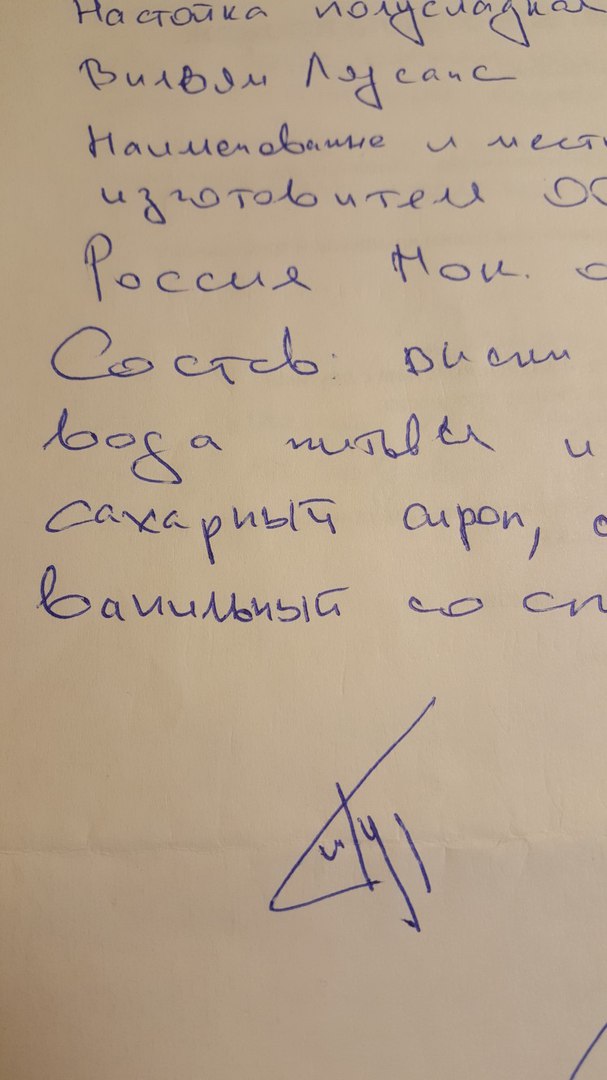 Настойка полусладкая
Вильям
Наименование и мест
изготовителя ОО
Россия
Состав: виски
вода питьевая и
сахарный сироп,
ванильный со сп